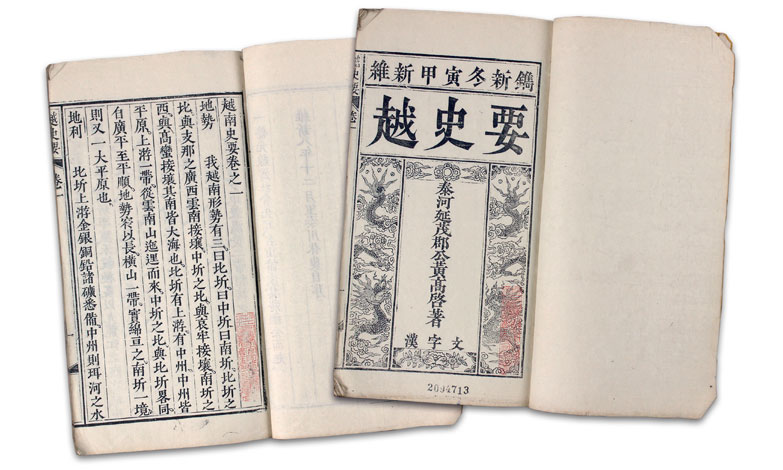 越南史要卷之一
地勢 我越南形勢有三曰北圻曰中圻曰南圻北圻之
北與支那之廣西雲南接壤中圻之北與哀牢接壤南圻之
西與高蠻接壤其南皆大海也北圻有上游有中州中州皆
平原上游一帶從雲南山迤邐而來中圻之北與北圻畧同
自廣平至平順地勢窄以長橫山一帶實綿亘之南圻一境
則又一大平原也
地利 北圻上游金銀銅鉛諸礦悉備中州則珥河之水
越史要 卷一
維新甲寅冬新鐫
越史要
泰河延茂郡公黃高啓著
漢字文
2094713